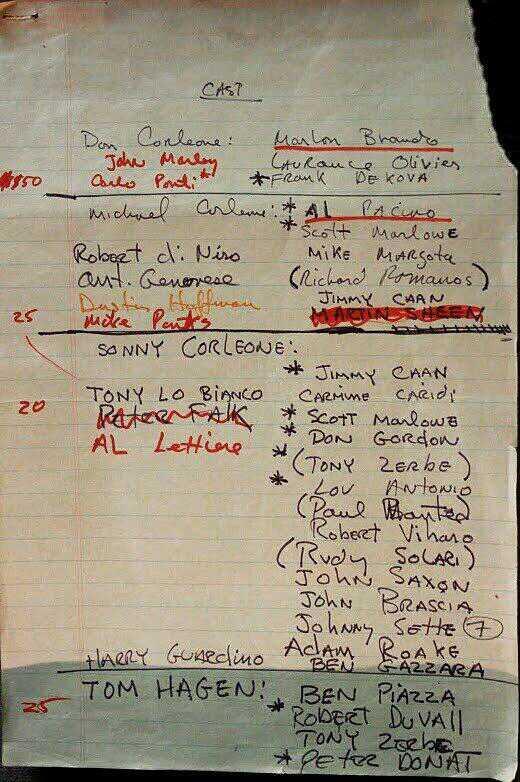 CAST
Don Corleone: Marlon Brando
John Marley Laurance Olivier
Carlo Ponti * * FRANK DEKOVA
$850
Michael Corleone: * AL PACINO
* Scott Marlowe
Robert di Niro MIKE MARGOTA
Ant. Genovese (Richard Romanos)
Dustin Huffman JIMMY CAAN
25 MARTIN SHEEN
SONNY CORLEONE:
* JIMMY CAAN
TONY LO BIANCO CARMINE CARIDI
20 Peter FALK * SCOTT MARLOWE
AL Lettiere * DON GORDON
(TONY ZERBE)
* LOU ANTONIO
(Paul
Robert Viharo
(RUDY SOLARI)
JOHN SAXON
JOHN BRASCIA
Johnny SETTE 7
Adam ROAKE
HARRY GUARDINO BEN GAZZARA
TOM HAGEN: BEN PIAZZA
25 * ROBERT DUVAll
TONY ZERBE
* PETER DONAT